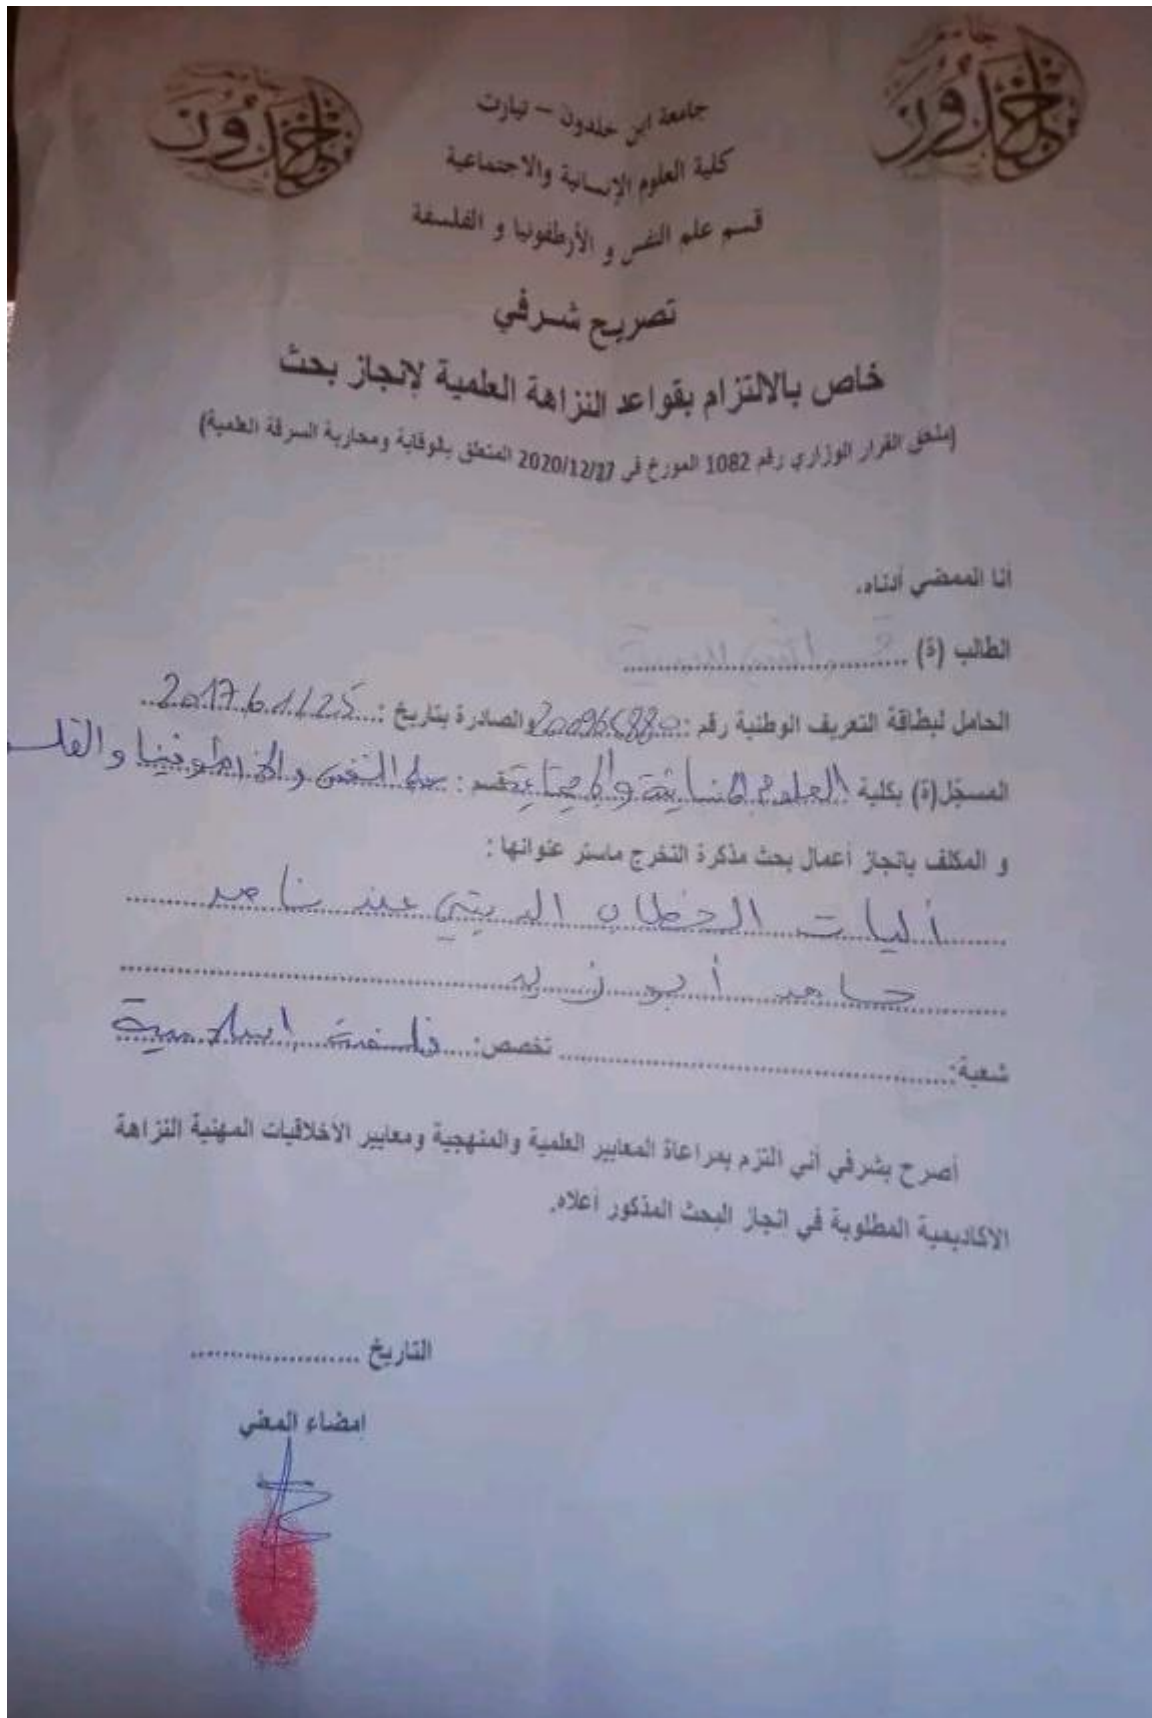 جامعة ابن خلدون
جامعة ابن خلدون – تيارت
كلية العلوم الإنسانية والاجتماعية
قسم علم النفس و الأرطفونيا و الفلسفة
تصريح شرفي
خاص بالالتزام بقواعد النزاهة العلمية لإنجاز بحث
(ملحق القرار الوزاري رقم 1082 المورخ في 2020/12/27 المتعلق بالوقاية ومحاربة السرقة العلمية)
أنا الممضي أدناه.
الطالب (ة)
الحامل لبطاقة التعريف الوطنية رقم : والصادرة بتاريخ :
المسجّل(ة) بكلية العلوم الانسانية والاجتماعية قسم : علم النفس والارطوفنيا و الفلس
و المكلف بانجاز أعمال بحث مذكرة التخرج ماستر عنوانها :
أليات الخطاب الديني عند ناصر
حامد أبو زيد
شعبة: تخصص: فلسفة اسلامية
أصرح بشرفي أني ألتزم بمراعاة المعايير العلمية والمنهجية ومعايير الأخلاقيات المهنية النزاهة
الاكاديمية المطلوبة في انجاز البحث المذكور أعلاه.
التاريخ
امضاء المعني